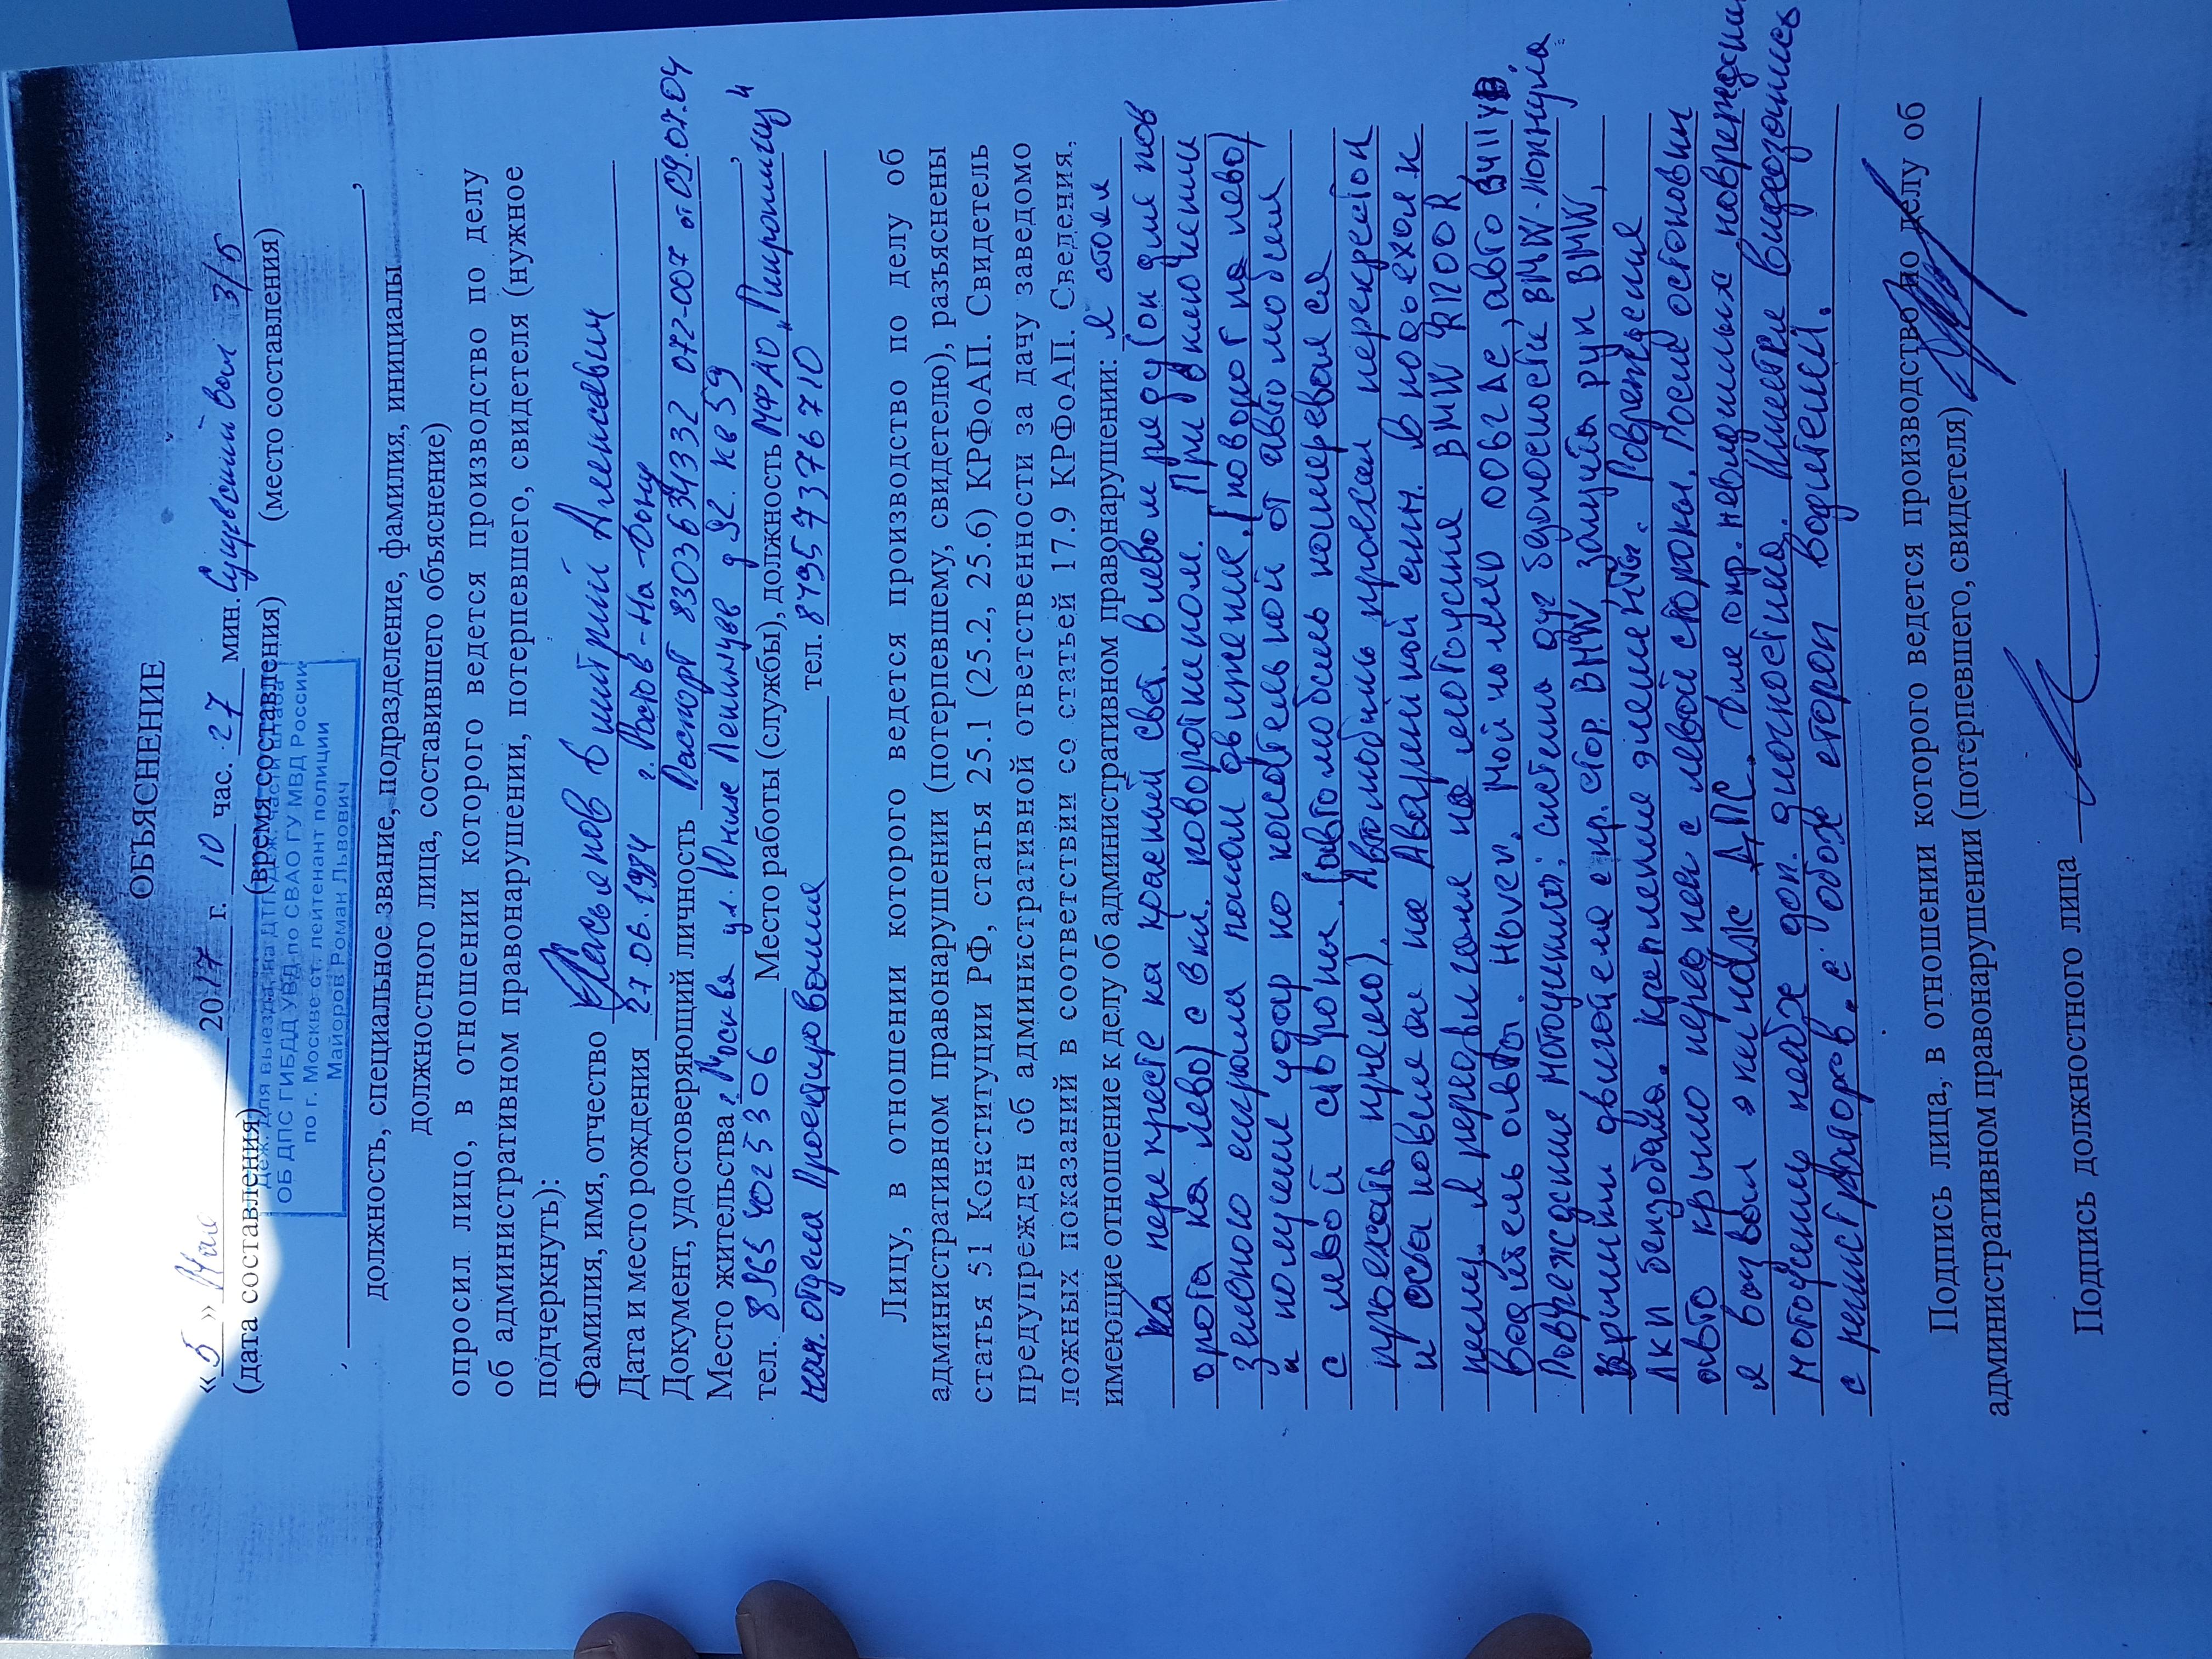 ОБЪЯСНЕНИЕ
«5» Мая 2017 г. 10 час. 27 мин. Сущевский вал 3/5
(дата составления) (время составления) (место составления)
Деж. для выезда на ДТП деж. части
ОБ ДПС ГИБДД УВД по СВАО ГУ МВД России
по г. Москве ст. лейтенант полиции
Майоров Роман Львович
должность, специальное звание, подразделение, фамилия, инициалы
должностного лица, составившего объяснение)
опросил лицо, в отношении которого ведется производство по делу
об административном правонарушении, потерпевшего, свидетеля (нужное
подчеркнуть):
Фамилия, имя, отчество Дмитрий Алексеевич
Дата и место рождения 27.06.1984 г. Ростов-На-Дону
Документ, удостоверяющий личность Паспорт 8303634332 072-007 от 09.07.04
Место жительства г. Москва ул. Юных Ленинцев д 92. кв 59,
тел. 89654025306 Место работы (службы), должность МФ АО „
нач. отдела Проектирования тел. 84957376710
Лицу, в отношении которого ведется производство по делу об
административном правонарушении (потерпевшему, свидетелю), разъяснены
статья 51 Конституции РФ, статья 25.1 (25.2, 25.6) КРФоАП. Свидетель
предупрежден об административной ответственности за дачу заведомо
ложных показаний в соответствии со статьей 17.9 КРФоАП. Сведения,
имеющие отношение к делу об административном правонарушении: Я стоял
на перекрестке на красный свет. В левом ряду (он для пов
орота на лево) с вкл. поворотником. При включении
зеленого сигнала начал движение, (поворот на лево)
и получил удар по касательной от автомобиля
с левой стороны. (автомобиль намеревался
проехать прямо). Автомобиль проехал перекресток
и остановился на Аварийной сигн. Я подъехал к
нему. Я передвигался на мотоцикле BMW R1200R
Водитель авто. Hover. Мой номер 0061АС, авто
Повреждения мотоцикла: система дуг безопасности BMW-погнута
Крышки двигателя с пр. стор. BMW защиты рук BMW,
ЛКП бензобака. крепление элементы. Повреждения
авто крыло перед пан с левой стороны. После остановки
я вызвал экипаж ДПС. Для опр. невидимых поврежден
мотоциклу необх доп. диагностика. Имеется видеозапись
с регистраторов. с обох сторон водителей.
Подпись лица, в отношении которого ведется производство по делу об
административном правонарушении (потерпевшего, свидетеля)
Подпись должностного лица